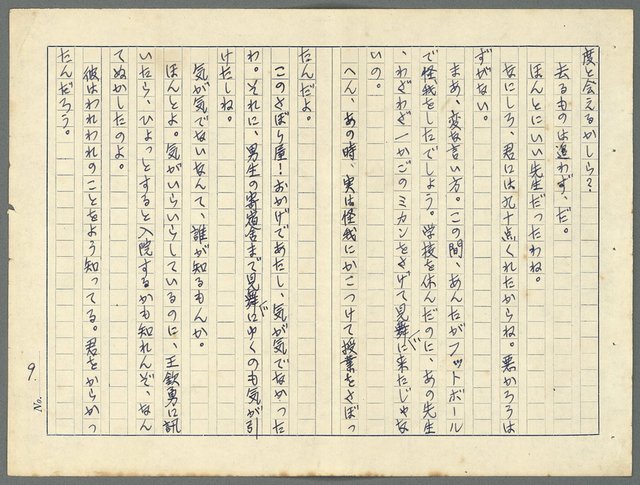 度と会えるかしら?
去るものは追わず、だ。
ほんとにいい先生だったわね。
なにしろ、君には九十点くれたからね。悪かろうは
ずがない。
まあ、変な言い方。この間、あんたがフットボール
で怪我をしたでしょう。学校を休んだのに、あの先生
、わざわざ一かごのミカンをさげて見舞に来たじゃな
いの。
へん、あの時、実は怪我にかこつけて授業をさぼっ
たんだよ。
このさぼら屋!おかげであたし、気が気でなかった
わ。それに、男生の寄宿舎まで見舞にゆくのも気が引
けたしね。
気が気でないなんて、誰が知るもんか。
ほんとよ。気がいらいらしているのに、王欽勇に訊
いたら、ひょっとすると入院するかも知れんぞ、なん
てぬかしたのよ。
彼はわれわれのことをよう知ってる。君をからかっ
たんだろう。
No. 9